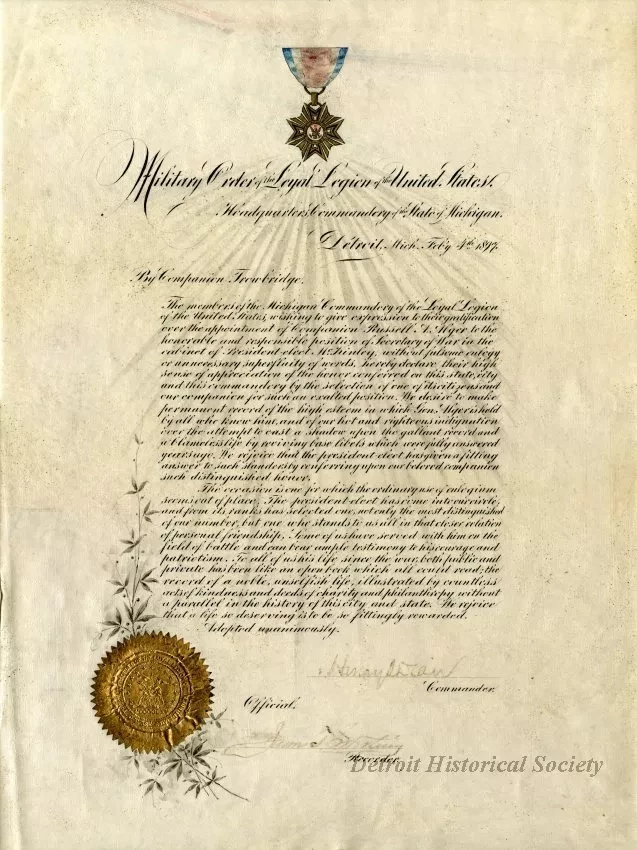 Military Order of the Loyal Legion of the United States.
Headquarters Commandery of the State of Michigan.
Detroit, Mich. Feb'y 4th 1897.
By Companion Trowbridge.
The members of the Michigan Commandery of the Loyal Legion
of the United States, wishing to give expression to their gratification
over the appointment of Companion Russell A. Alger to the
honorable and responsible position of Secretary of War in the
cabinet of President elect McKinley, without fulsome eulogy
or unnecessary superfluity of words, hereby declare their high
sense of appreciation of the honor conferred on this state, city
and this commandery by the selection of one of its citizens and
our companion for such an exalted position. We desire to make
permanent record of the high esteem in which Gen. Alger is held
by all who know him, and of our hot and righteous indignation
over the attempt to cast a shadow upon the gallant record and
a blameless life by reviving base libels which were fully answered
years ago. We rejoice that the president elect has given a fitting
answer to such slanders by conferring upon our beloved companion
such distinguished honor.
The occasion is one for which the ordinary use of eulogium
seems out of place. The president-elect has come into our circle,
and from its ranks has selected one, not only the most distinguished
of our number, but one who stands to us all in that closer relation
of personal friendship. Some of us have served with him on the
field of battle and can bear ample testimony to his courage and
patriotism. To all of us his life since the war, both public and
private has been like an open book which all could read; the
record of a noble, unselfish life, illustrated by countless
acts of kindness and deeds of charity and philanthropy without
a parallel in the history of this city and state. We rejoice
that a life so deserving is to be so fittingly rewarded.
Adopted unanimously.
Commander.
Official.
Recorder.
Detroit Historical Society